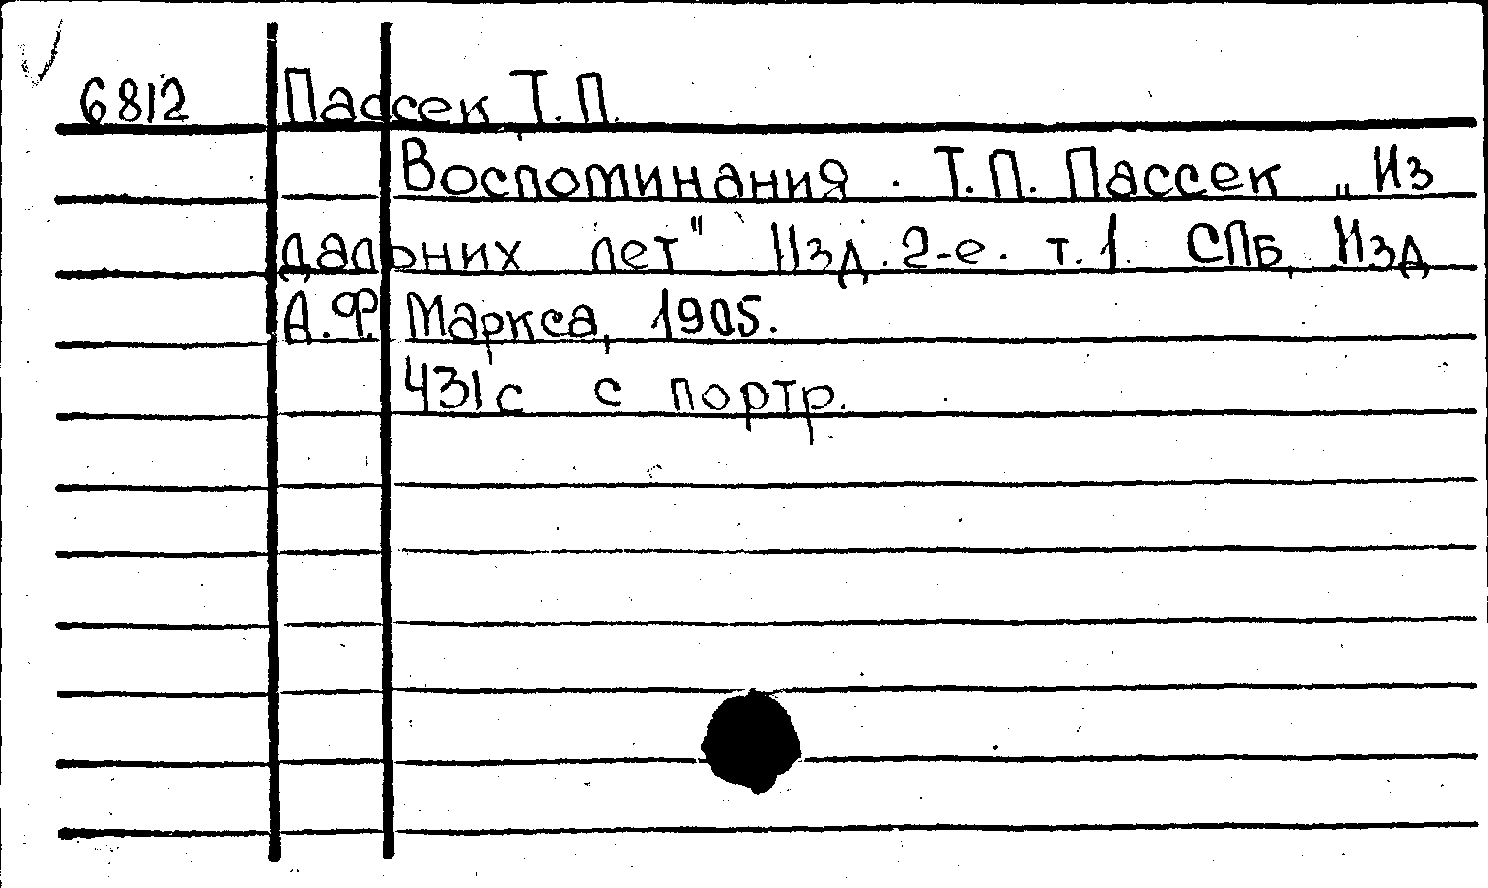 6812 Пассек Т.П.
Воспоминания. Т.П. Пассек „Из
дальних лет" Изд. 2-е. т. 1. СПБ, Изд
А.Ф. Маркса, 1905.
431с с портр.